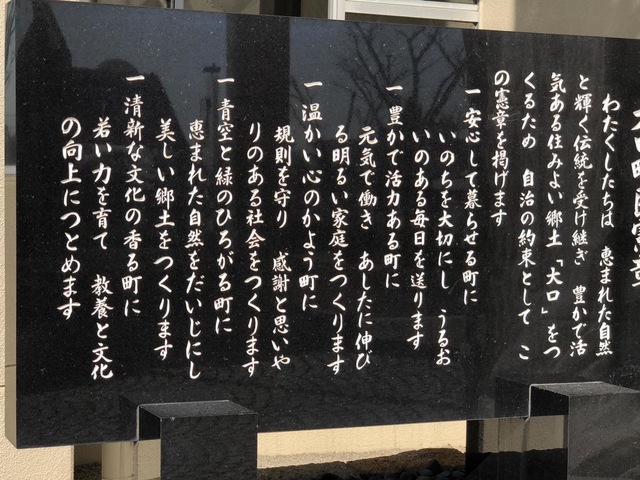 わたくしたちは 恵まれた自然
と輝く伝統を受け継ぎ 豊かで活
気ある住みよい郷土「大口」をつ
くるため 自治の約束として こ
の憲章を掲げます
一 安心して暮らせる町に
いのちを大切にし うるお
いのある毎日を送ります
一 豊かで活力ある町に
元気で働き あしたに伸び
る明るい家庭をつくります
一 温かい心のかよう町に
規則を守り 感謝と思いや
りのある社会をつくります
一 青空と緑のひろがる町に
恵まれた自然をだいじにし
美しい郷土をつくります
一 清新な文化の香る町に
若い力を育て 教養と文化
の向上につとめます